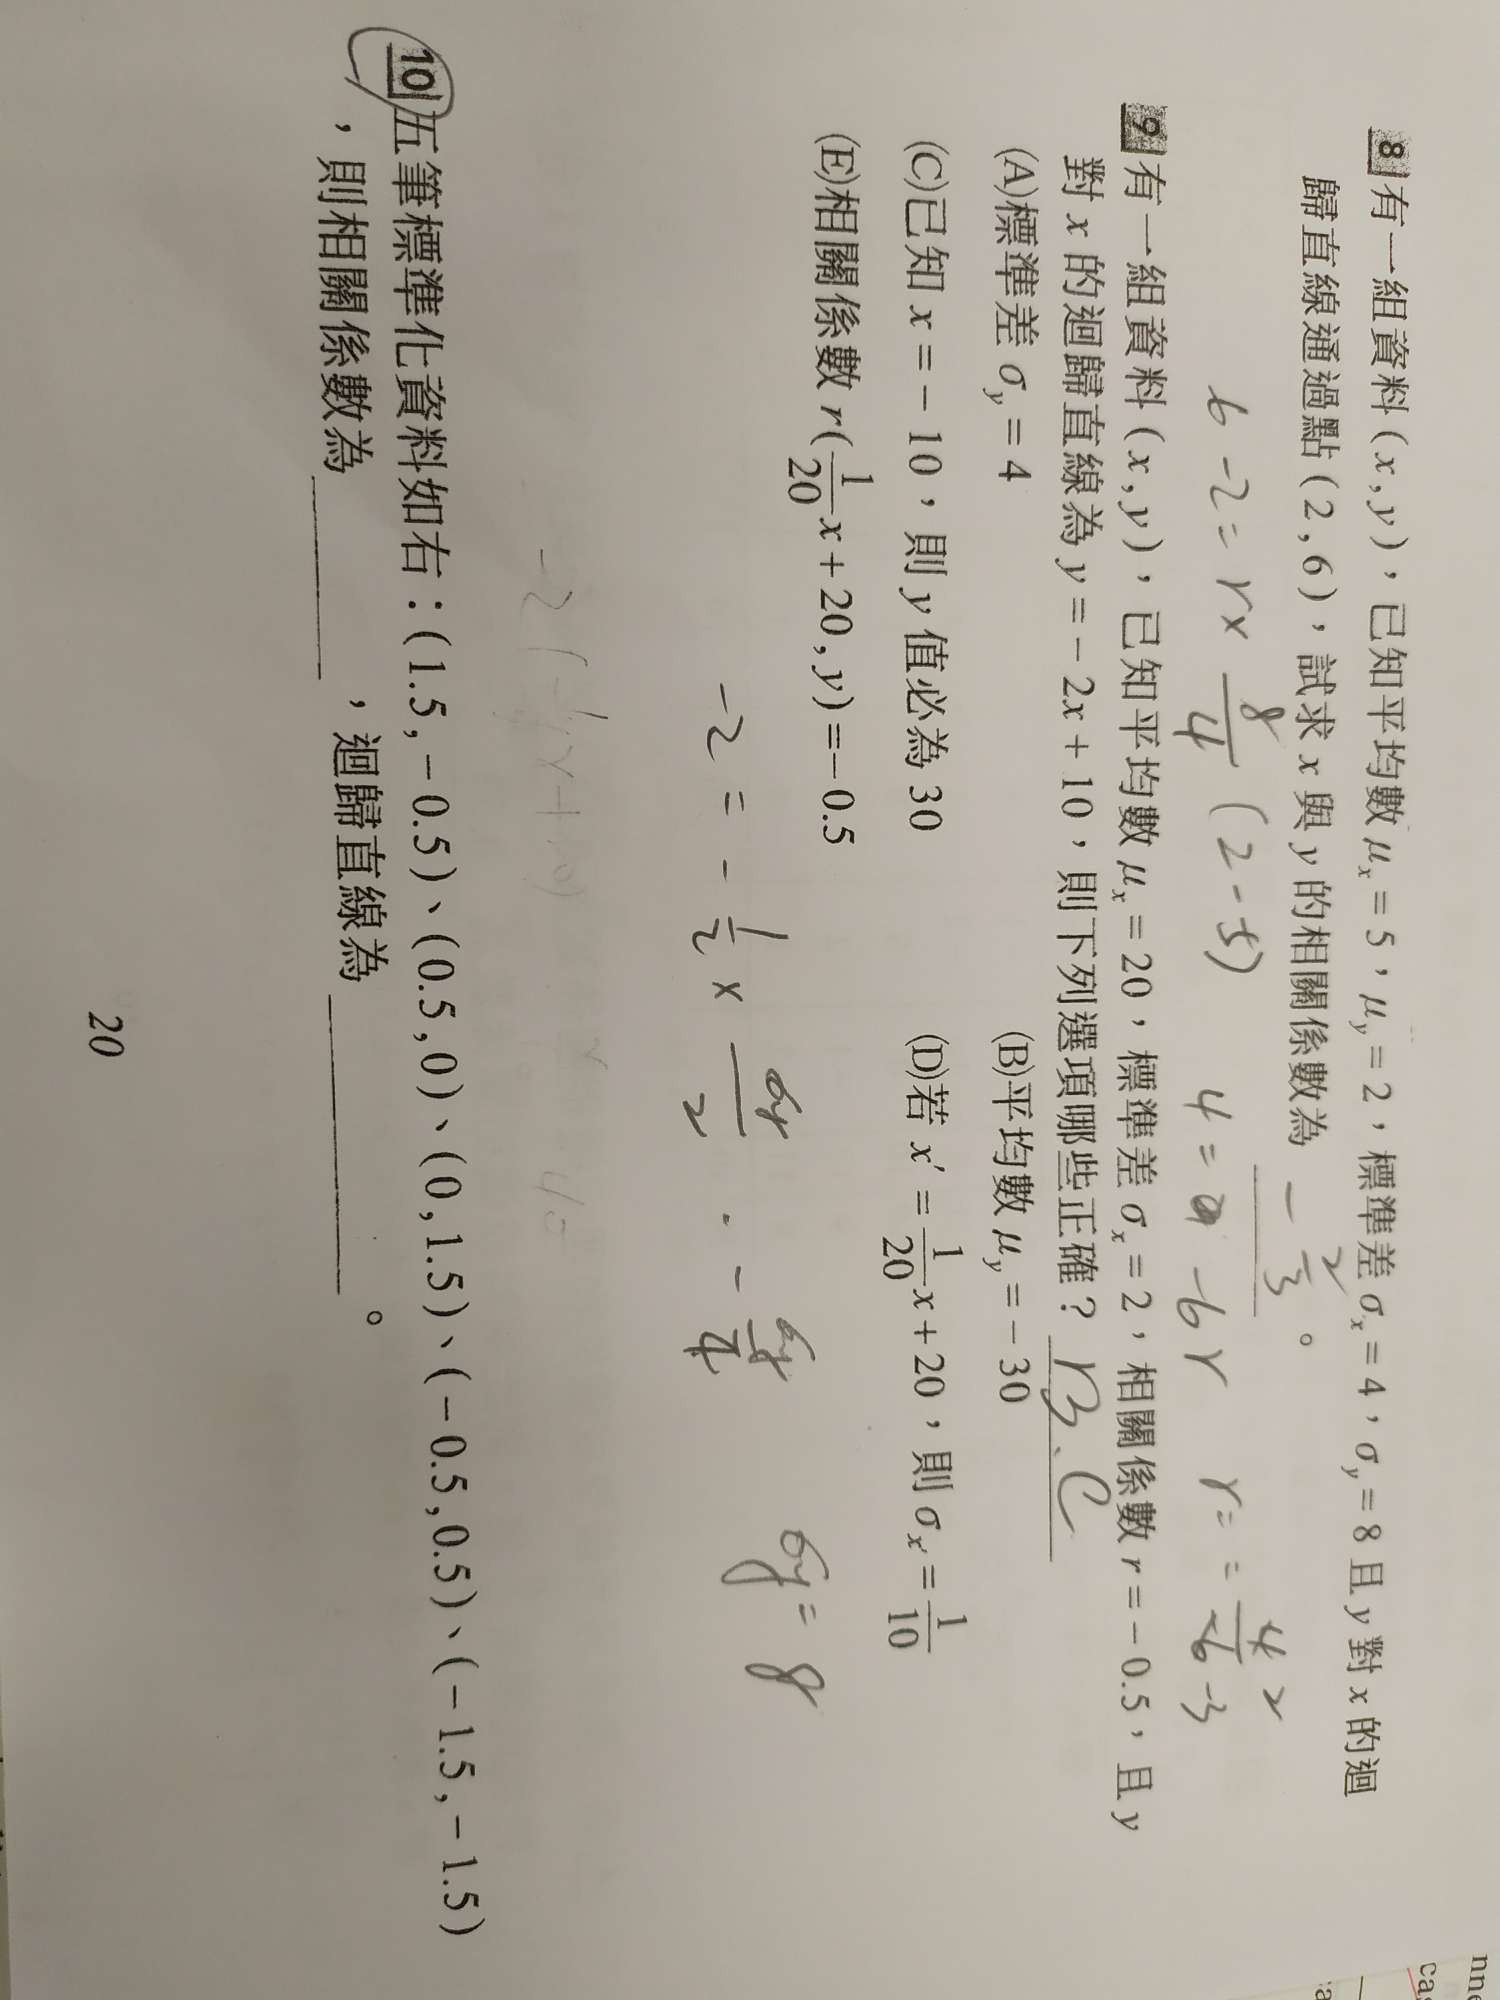 8 有一組資料(x,y)，已知平均數μx=5，μy=2，標準差σx=4，σy=8且y對x的迴
歸直線通過點(2,6)，試求x與y的相關係數為 -2/3 。
6-2=r×8/4(2-5) 4= -6r r= =4/-6 2/-3
9 有一組資料(x,y)，已知平均數μx=20，標準差σx=2，相關係數r=-0.5，且y
對x的迴歸直線為y=-2x+10，則下列選項哪些正確？ B、C
(A)標準差σy=4 (B)平均數μy=-30
(C)已知x=-10，則y值必為30 (D)若x'=1/20x+20，則σx'=1/10
(E)相關係數r(1/20x+20,y)=-0.5
-2=-1/2×σy/2 -σy/4 σy=8
10 五筆標準化資料如右：(1.5,-0.5)、(0.5,0)、(0,1.5)、(-0.5,0.5)、(-1.5,-1.5)
，則相關係數為 ，迴歸直線為 。
20